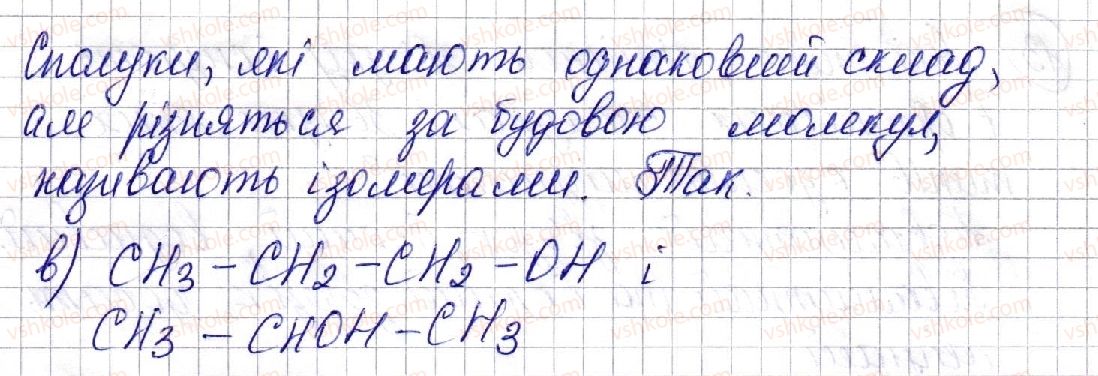 Сполуки, які мають однаковий склад,
але різняться за будовою молекул,
називають ізомерами. Так.
в) CH3 – CH2 – CH2 – OH і
CH3 – CHOH – CH3